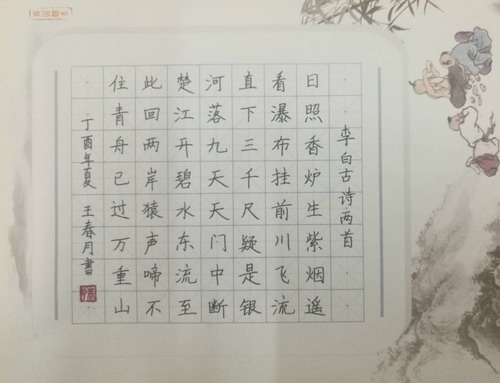 李白古诗两首
日照香炉生紫烟遥
看瀑布挂前川飞流
直下三千尺疑是银
河落九天天门中断
楚江开碧水东流至
此回两岸猿声啼不
住青舟已过万重山
丁酉年夏 王春月書